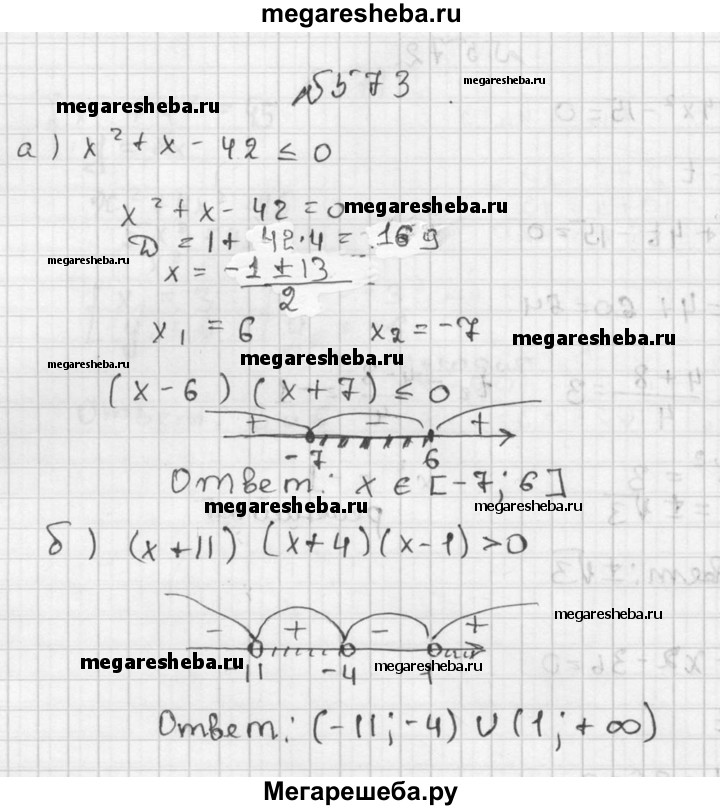 megaresheba.ru
№573
megaresheba.ru
megaresheba.ru
а) x² + x - 42 ≤ 0
x² + x - 42 = 0
megaresheba.ru
D = 1 + 42·4 = 169
megaresheba.ru
x = (-1 ± 13)/2
x₁ = 6 x₂ = -7
megaresheba.ru
megaresheba.ru
megaresheba.ru
(x - 6)(x + 7) ≤ 0
+ - +
-7 6
Ответ: x ∈ [-7; 6]
megaresheba.ru
megaresheba.ru
б) (x + 11)(x + 4)(x - 1) > 0
megaresheba.ru
- + - +
megaresheba.ru
-11 -4
megaresheba.ru
Ответ: (-11; -4) ∪ (1; +∞)
Мегарешеба.ру